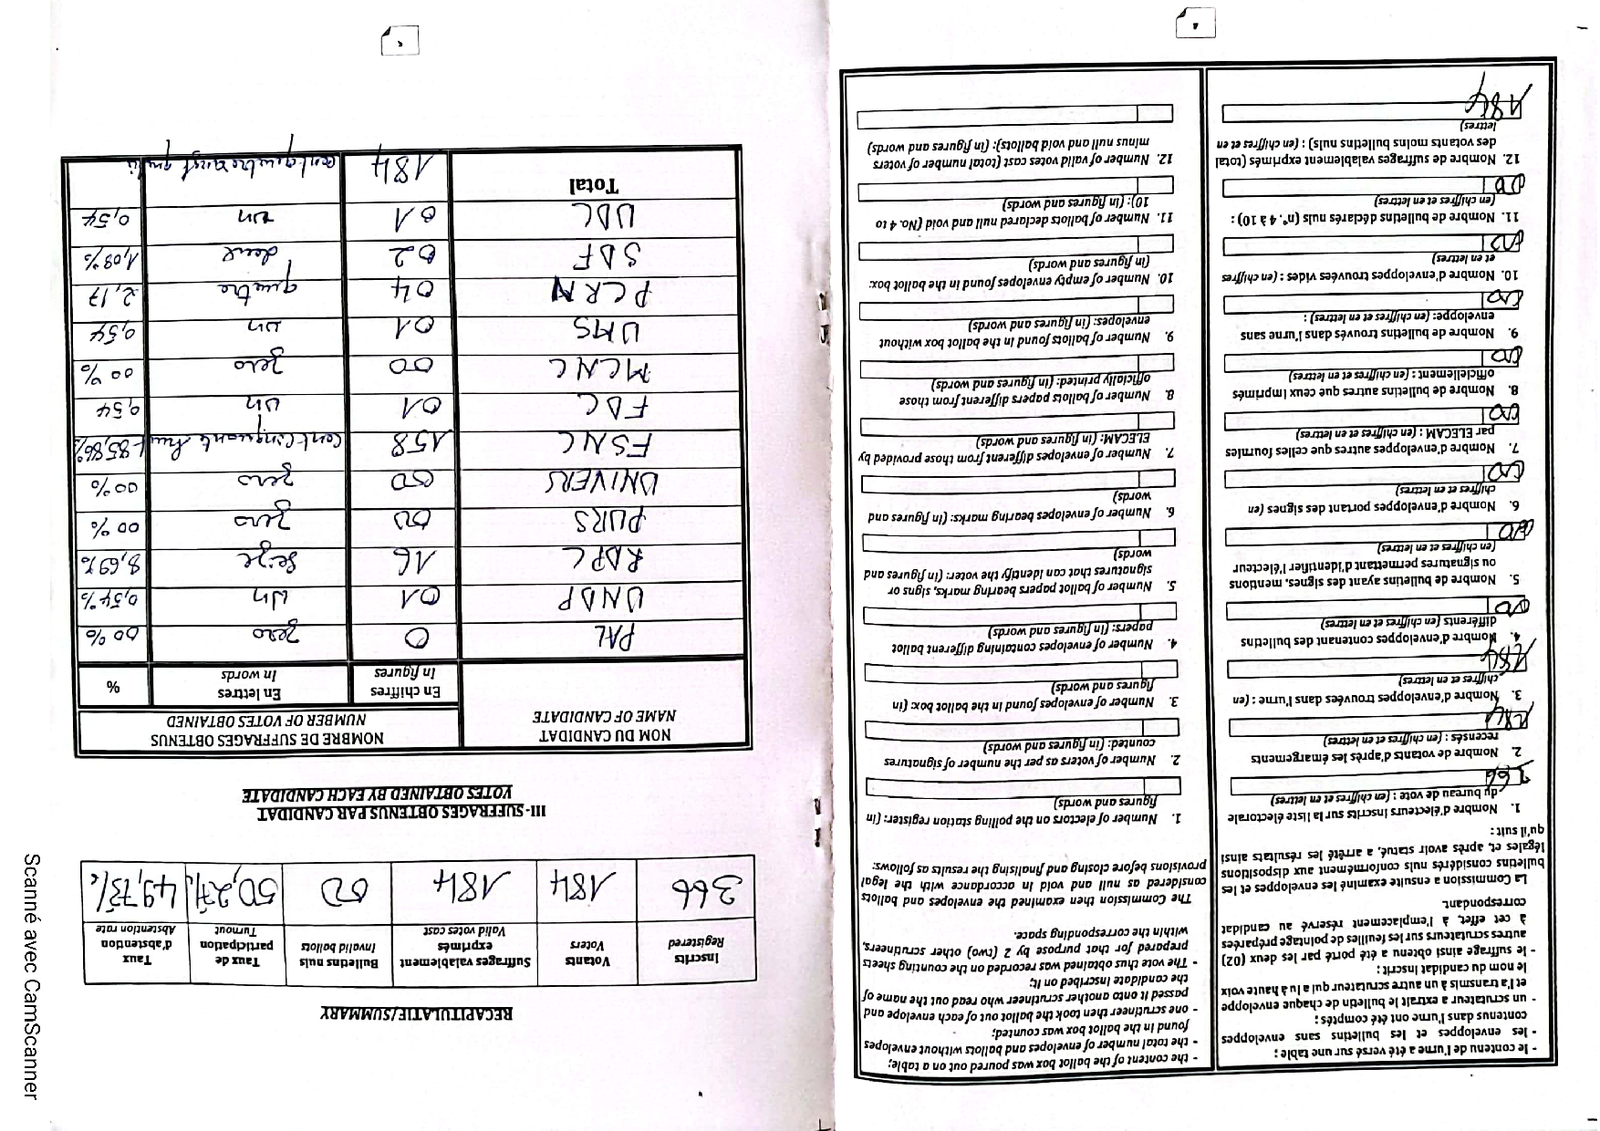 - le contenu de l'urne a été versé sur une table ;
- les enveloppes et les bulletins sans enveloppes
contenus dans l'urne ont été comptés ;
- un scrutateur a extrait le bulletin de chaque enveloppe
et l'a transmis à un autre scrutateur qui a lu à haute voix
le nom du candidat inscrit ;
- le suffrage ainsi obtenu a été porté par les deux (02)
autres scrutateurs sur les feuilles de pointage préparées
à cet effet, à l'emplacement réservé au candidat
correspondant.
La Commission a ensuite examiné les enveloppes et les
bulletins considérés nuls conformément aux dispositions
légales et, après avoir statué, a arrêté les résultats ainsi
qu'il suit :
1. Nombre d'électeurs inscrits sur la liste électorale
du bureau de vote : (en chiffres et en lettres)
366
2. Nombre de votants d'après les émargements
recensés : (en chiffres et en lettres)
184
3. Nombre d'enveloppes trouvées dans l'urne : (en
chiffres et en lettres)
184
4. Nombre d'enveloppes contenant des bulletins
différents (en chiffres et en lettres)
00
5. Nombre de bulletins ayant des signes, mentions
ou signatures permettant d'identifier l'électeur
(en chiffres et en lettres)
00
6. Nombre d'enveloppes portant des signes (en
chiffres et en lettres)
00
7. Nombre d'enveloppes autres que celles fournies
par ELECAM : (en chiffres et en lettres)
00
8. Nombre de bulletins autres que ceux imprimés
officiellement : (en chiffres et en lettres)
00
9. Nombre de bulletins trouvés dans l'urne sans
enveloppe: (en chiffres et en lettres) :
00
10. Nombre d'enveloppes trouvées vides : (en chiffres
et en lettres)
00
11. Nombre de bulletins déclarés nuls (n°. 4 à 10) :
(en chiffres et en lettres)
00
12. Nombre de suffrages valablement exprimés (total
des votants moins bulletins nuls) : (en chiffres et en
lettres)
184
- the content of the ballot box was poured out on a table;
- the total number of envelopes and ballots without envelopes
found in the ballot box was counted;
- one scrutineer then took the ballot out of each envelope and
passed it onto another scrutineer who read out the name of
the candidate inscribed on it;
- The vote thus obtained was recorded on the counting sheets
prepared for that purpose by 2 (two) other scrutineers,
within the corresponding space.
The Commission then examined the envelopes and ballots
considered as null and void in accordance with the legal
provisions before closing and finalising the results as follows:
1. Number of electors on the polling station register: (in
figures and words)
2. Number of voters as per the number of signatures
counted: (in figures and words)
3. Number of envelopes found in the ballot box: (in
figures and words)
4. Number of envelopes containing different ballot
papers: (in figures and words)
5. Number of ballot papers bearing marks, signs or
signatures that can identify the voter: (in figures and
words)
6. Number of envelopes bearing marks: (in figures and
words)
7. Number of envelopes different from those provided by
ELECAM: (in figures and words)
8. Number of ballots papers different from those
officially printed: (in figures and words)
9. Number of ballots found in the ballot box without
envelopes: (in figures and words)
10. Number of empty envelopes found in the ballot box:
(in figures and words)
11. Number of ballots declared null and void (No. 4 to
10): (in figures and words)
12. Number of valid votes cast (total number of voters
minus null and void ballots): (in figures and words)
RECAPITULATIF/SUMMARY
Inscrits Registered | Votants Voters | Suffrages valablement exprimés Valid votes cast | Bulletins nuls Invalid ballots | Taux de participation Turnout | Taux d'abstention Abstention rate
366 | 184 | 184 | 00 | 50,27% | 49,73%
III- SUFFRAGES OBTENUS PAR CANDIDAT
VOTES OBTAINED BY EACH CANDIDATE
NOM DU CANDIDAT NAME OF CANDIDATE | NOMBRE DE SUFFRAGES OBTENUS NUMBER OF VOTES OBTAINED
En chiffres In figures | En lettres In words | %
PAL | 0 | zero | 00%
UNDP | 01 | un | 0,54%
RDPC | 16 | Seize | 8,69%
PURS | 00 | zero | 00%
UNIVERS | 00 | zero | 00%
FSNC | 158 | Cent cinquante huit | 85,86%
FDC | 01 | un | 0,54
MCNC | 00 | zero | 00%
UMS | 01 | un | 0,54
PCRN | 04 | quatre | 2,17
SDF | 02 | deux | 1,08%
UDC | 01 | un | 0,54
Total | 184 | cent quatre vingt quatre
Scanné avec CamScanner